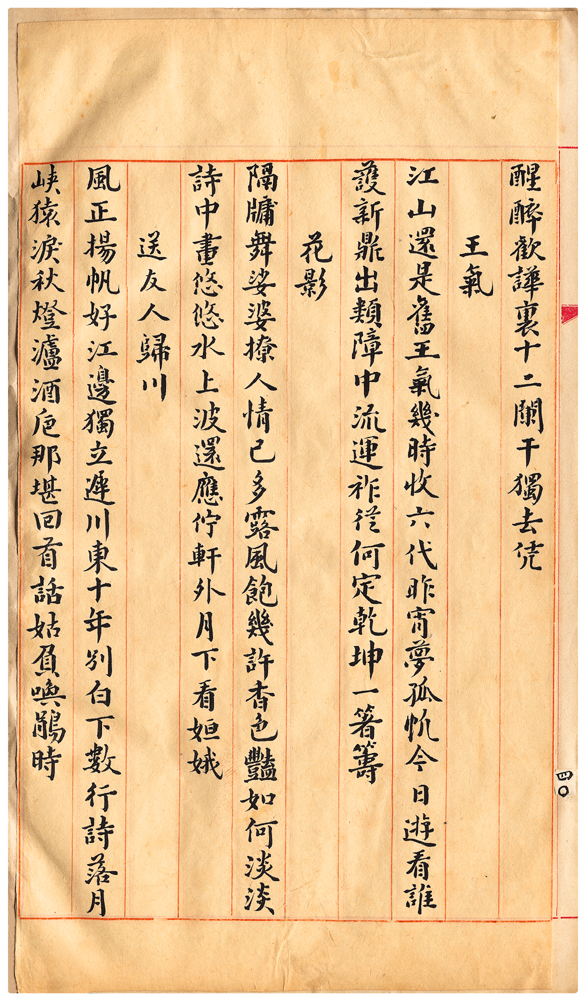 醒醉歡譁裏十二闌干獨去凭
王氣
江山還是舊王氣幾時收六代昨宵夢孤帆今日遊看誰
護新鼎出類障中流運祚從何定乾坤一箸籌
花影
隔牖舞娑婆撩人情已多露風飽幾許香色豔如何淡淡
詩中畫悠悠水上波還應佇軒外月下看姮娥
送友人歸川
風正揚帆好江邊獨立遲川東十年別白下數行詩落月
峽猿淚秋燈瀘酒卮那堪回首話姑負喚鵑時
四〇